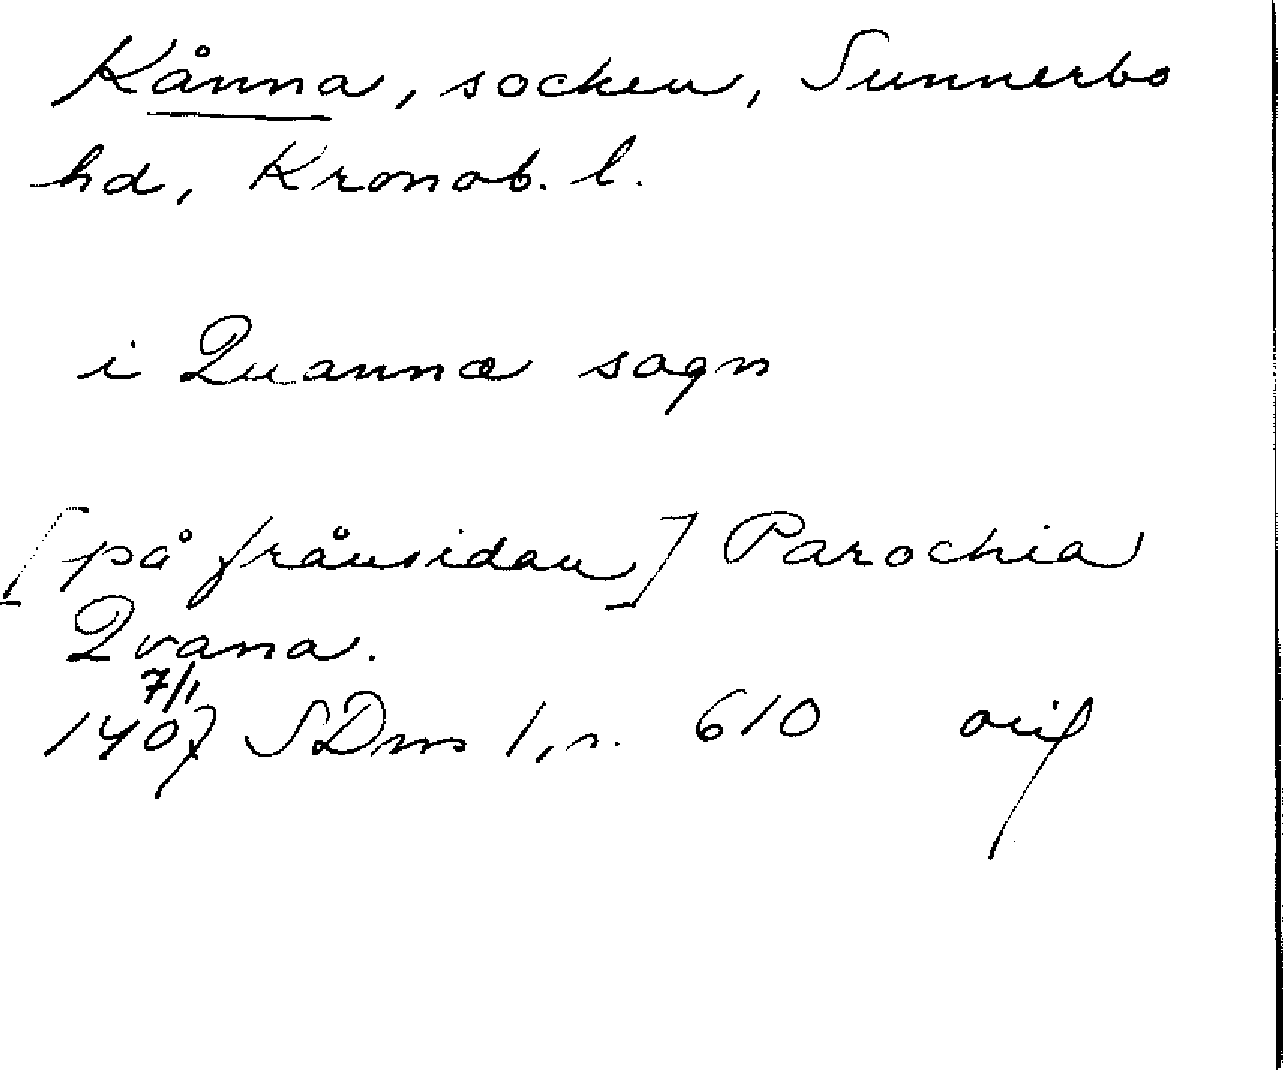 Kånna, socken, Sunnerbo
hd, Kronob. l.
i Quannæ sogn
[på frånsidan] Parochia
Qvana.
7/1
1407 SDns 1, s. 610 orig